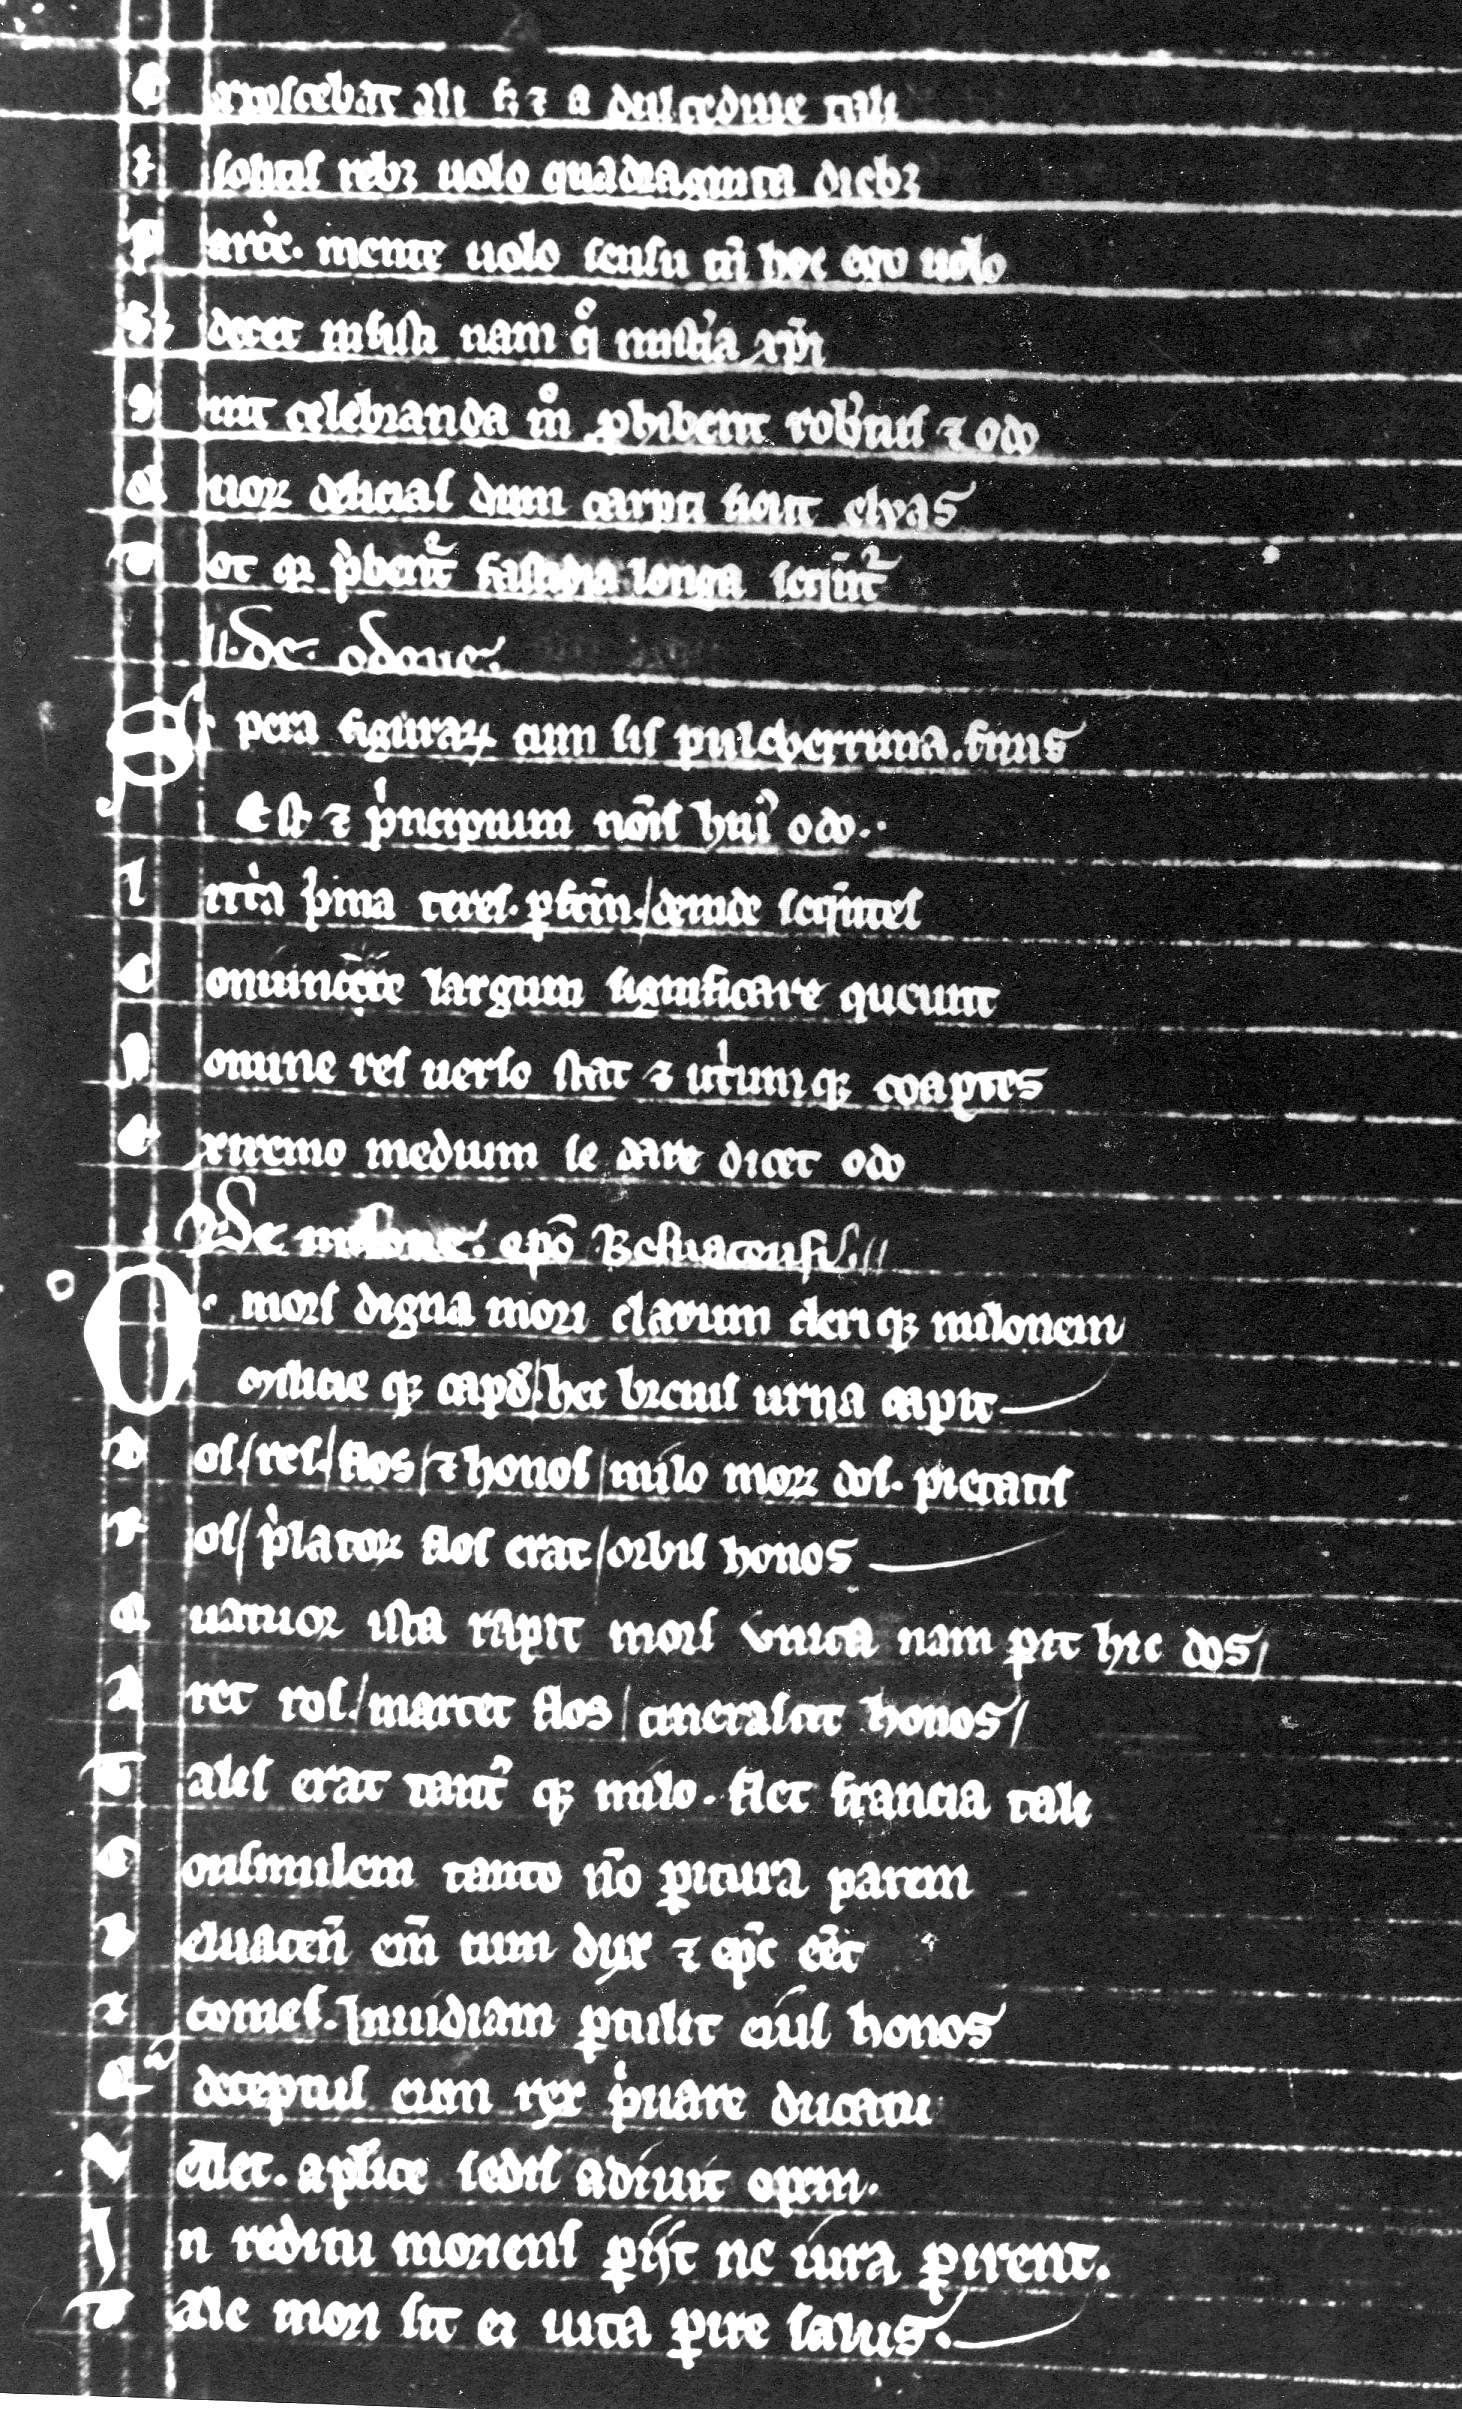 solitis rebꝫ uolo quadraginta diebꝫ
P arcˀe. mente uolo sensu tn̄ hoc ego uolo
decet insisti nam qͦ misteria xp̄i
S unt celebranda mͦ ꝓhibent rob̾tus ⁊ odo
Q uoꝝ delicias dum carpit elyas
T ot qꝫ p̾bent᷑ fastidia longa secūnt᷑
De odone.
S pera figuraꝝ cum sis pulcherrima. finis
Est ⁊ pͥncipium nōis huiꝰ odo.
L itt̾a pͥma teres. ꝑfectū. / deinde seqn̄tes
C onuincˀe largum significare queunt
N omine res uerso stat ⁊ ut̾umqꝫ coaptes
E xtremo medium se dare dicet odo
De milone. ep̄o Beluacensi.
O mors digna mori clarum cleri qꝫ milonem
qꝫ hec breuis urna capit
D os / res / flos / ⁊ honos / milo moꝝ dos. pietatis
R os / p̾latoꝝ flos erat / orbis honos
Q uatuor ista rapit mors vnica nam ꝑit hic dos /
A ret ros. / marcet flos / cinerascit honos /
T alis erat tantꝰ qꝫ milo. flet francia tali
C onsimilem tanto nō ꝑitura parem
B eluacen̄ em̄ cum dux ⁊ ep̄c eēt
⁊ comes. Inuidiam ꝑtulit eius honos
Qͣ deceptus eum rex pͥuare ducatu
V ellet. apl̄ice sedis adiuit opem.
I n reditu moriens ꝑijt ne iura ꝑirent.
T ale mori sit ei uita ꝑire salus.